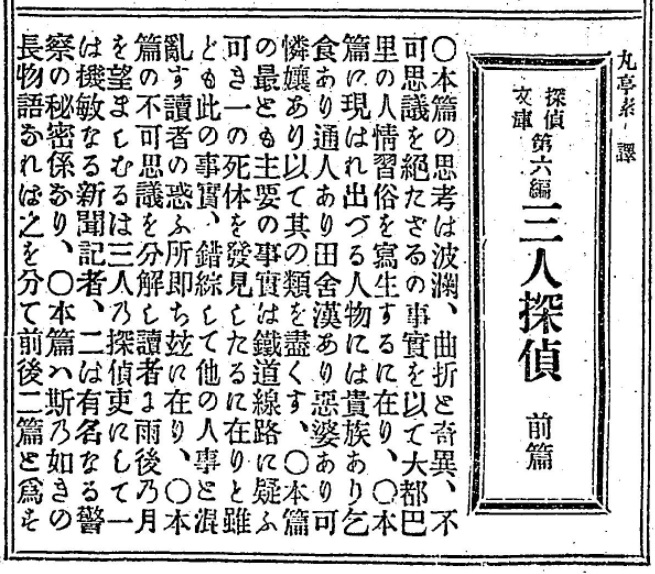 丸亭素人譯
探偵文庫 第六編 三人探偵 前篇
〇本篇の思考は波瀾、曲折と奇異、不
可思議を絶たざるの事實を以て大都巴
里の人情習俗を寫生するに在り、〇本
篇に現はれ出づる人物には貴族あり乞
食あり通人あり田舍漢あり惡婆あり可
憐孃あり以て其の類を盡くす、〇本篇
の最とも主要の事實は鐵道線路に疑ふ
可き一の死体を發見したるに在りと雖
ども此の事實、錯綜して他の人事と混
亂す讀者の惑ふ所即ち玆に在り、〇本
篇の不可思議を分解し讀者ょ雨後乃月
を望ましむるは三人乃探偵吏にして一
は機敏なる新聞記者、二は有名なる警
察の秘密係なり、〇本篇ハ斯乃如きの
長物語なれば之を分て前後二篇と爲す